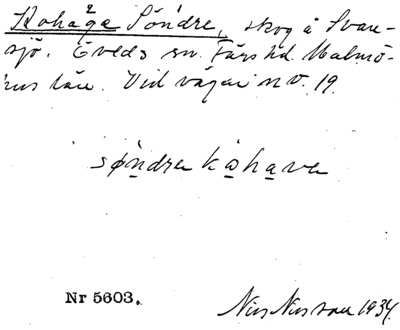 Kohåga Söndre, skog å Svan-
sjö. Öveds sn. Färs hd. Malmö-
hus län. Vid vägar n.v. 19.
søndrə kohavə
Nr 5603.
Nils Nilsson 1934.